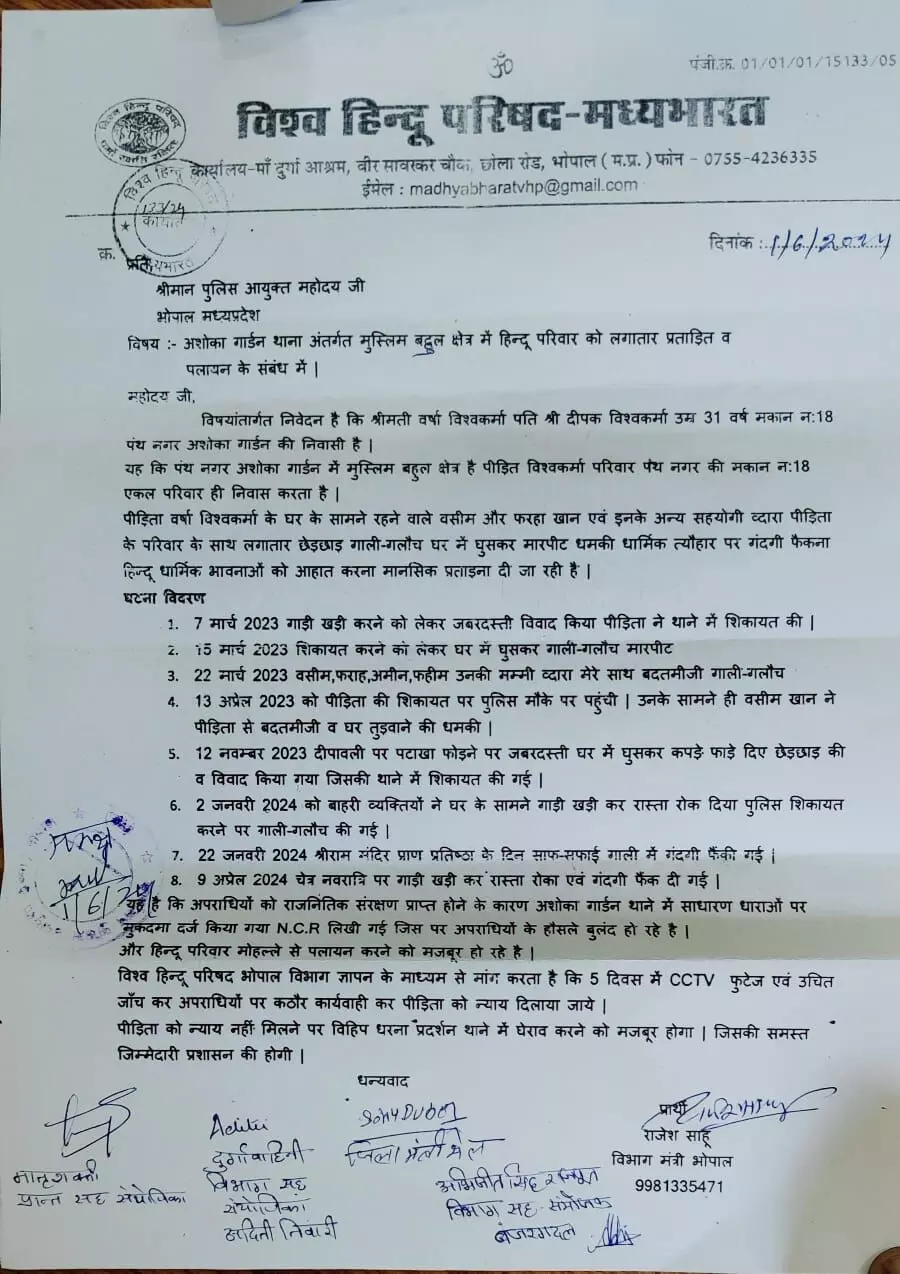 ॐ
पंजी.क्र. 01/01/01/15133/05
विश्व हिन्दू परिषद-मध्यभारत
कार्यालय-माँ दुर्गा आश्रम, वीर सावरकर चौक, छोला रोड, भोपाल ( म.प्र. ) फोन - 0755-4236335
ईमेल : madhyabharatvhp@gmail.com
विश्व हिन्दू
133/24
दिनांक : 1/6/2024
क्र. प्रति,
श्रीमान पुलिस आयुक्त महोदय जी
भोपाल मध्यप्रदेश
विषय :- अशोका गार्डन थाना अंतर्गत मुस्लिम बहुल क्षेत्र में हिन्दू परिवार को लगातार प्रताड़ित व
पलायन के संबंध में |
महोदय जी,
विषयांतार्गत निवेदन है कि श्रीमती वर्षा विश्वकर्मा पति श्री दीपक विश्वकर्मा उम्र 31 वर्ष मकान न:18
पंथ नगर अशोका गार्डन की निवासी है |
यह कि पंथ नगर अशोका गार्डन में मुस्लिम बहुल क्षेत्र है पीड़ित विश्वकर्मा परिवार पंथ नगर की मकान न:18
एकल परिवार ही निवास करता है |
पीड़िता वर्षा विश्वकर्मा के घर के सामने रहने वाले वसीम और फरहा खान एवं इनके अन्य सहयोगी व्दारा पीड़िता
के परिवार के साथ लगातार छेड़छाड़ गाली-गलौच घर में घुसकर मारपीट धमकी धार्मिक त्यौहार पर गंदगी फैकना
हिन्दू धार्मिक भावनाओं को आहात करना मानसिक प्रताड़ना दी जा रही है |
घटना विवरण
1. 7 मार्च 2023 गाड़ी खड़ी करने को लेकर जबरदस्ती विवाद किया पीड़िता ने थाने में शिकायत की |
2. 15 मार्च 2023 शिकायत करने को लेकर घर में घुसकर गाली-गलौच मारपीट
3. 22 मार्च 2023 वसीम,फराह,अमीन,फहीम उनकी मम्मी व्दारा मेरे साथ बदतमीजी गाली-गलौच
4. 13 अप्रेल 2023 को पीड़िता की शिकायत पर पुलिस मौके पर पहुंची | उनके सामने ही वसीम खान ने
पीड़िता से बदतमीजी व घर तुड़वाने की धमकी |
5. 12 नवम्बर 2023 दीपावली पर पटाखा फोड़ने पर जबरदस्ती घर में घुसकर कपड़े फाड़े दिए छेड़छाड़ की
व विवाद किया गया जिसकी थाने में शिकायत की गई |
6. 2 जनवरी 2024 को बाहरी व्यक्तियों ने घर के सामने गाड़ी खड़ी कर रास्ता रोक दिया पुलिस शिकायत
करने पर गाली-गलौच की गई |
7. 22 जनवरी 2024 श्रीराम मंदिर प्राण प्रतिष्ठा के दिन साफ-सफाई गाली में गंदगी फैंकी गई |
8. 9 अप्रेल 2024 चेत्र नवरात्रि पर गाड़ी खड़ी कर रास्ता रोका एवं गंदगी फैंक दी गई |
1/6/24
यह है कि अपराधियों को राजनितिक संरक्षण प्राप्त होने के कारण अशोका गार्डन थाने में साधारण धाराओं पर
मुकदमा दर्ज किया गया N.C.R लिखी गई जिस पर अपराधियों के हौसले बुलंद हो रहे है |
और हिन्दू परिवार मोहल्ले से पलायन करने को मजबूर हो रहे है |
विश्व हिन्दू परिषद भोपाल विभाग ज्ञापन के माध्यम से मांग करता है कि 5 दिवस में CCTV फुटेज एवं उचित
जाँच कर अपराधियों पर कठौर कार्यवाही कर पीड़िता को न्याय दिलाया जाये |
पीड़िता को न्याय नहीं मिलने पर विहिप धरना प्रदर्शन थाने में घेराव करने को मजबूर होगा | जिसकी समस्त
जिम्मेदारी प्रशासन की होगी |
धन्यवाद
प्रार्थी
राजेश साहू
विभाग मंत्री भोपाल
9981335471
मातृशक्ती
प्रान्त सह संयोजिका
Aditi
दुर्गावाहिनी
विभाग सह
संयोजिका
अदिती तिवारी
Sonu Dubey
जिला मंत्री
अभिजीत सिंह राजपूत
विभाग सह-संयोजक
बजरंगदल